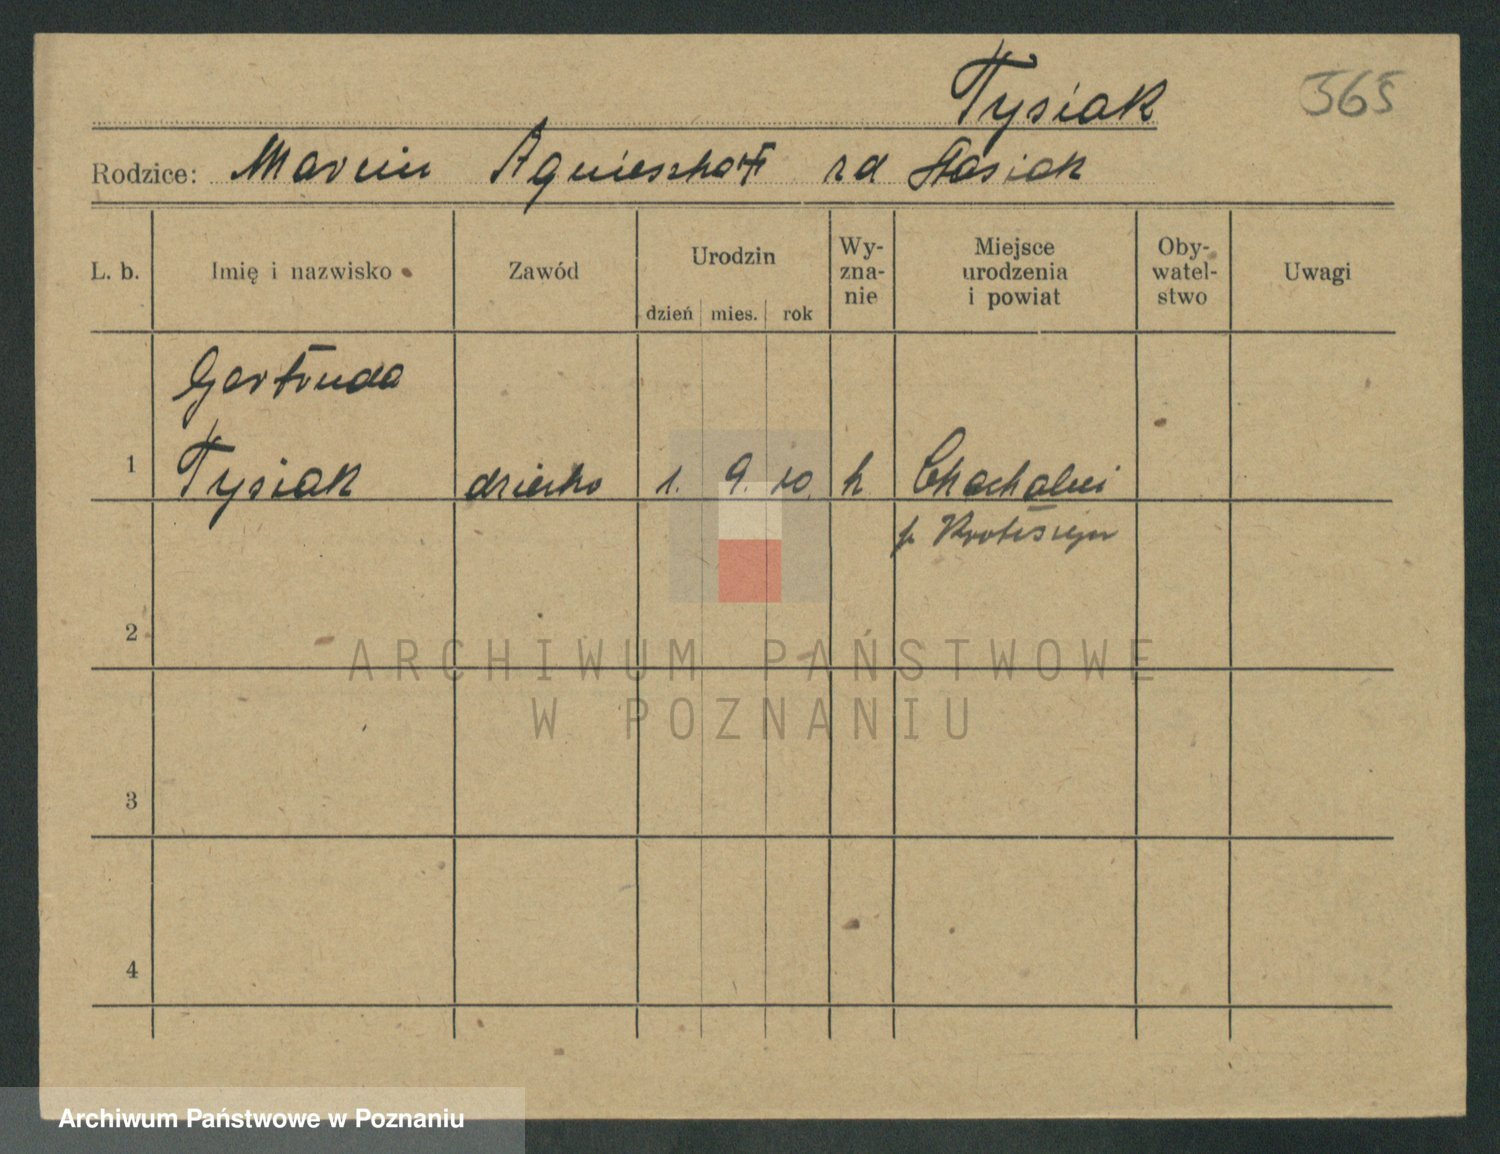 Tysiak
365
Rodzice: Marcin Agnieszka zd Stasiak
L. b. Imię i nazwisko Zawód Urodzin dzień mies. rok Wy-zna-nie Miejsce urodzenia i powiat Oby-watel-stwo Uwagi
Gertruda
1 Tysiak dziecko 1. 9. 10. k
p Krotoszyn
2
ARCHIWUM PAŃSTWOWE
W POZNANIU
3
4
Archiwum Państwowe w Poznaniu